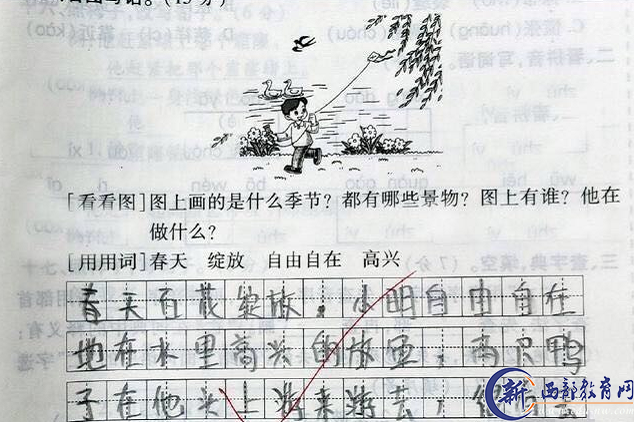 看图写话。(15 分)
[看看图]图上画的是什么季节？都有哪些景物？图上有谁？他在
做什么？
[用用词]春天 绽放 自由自在 高兴
春天百花绽放。小明自由自在
地在水里高兴的放，两只鸭
子在他头上游来游去，
新 西部教育网